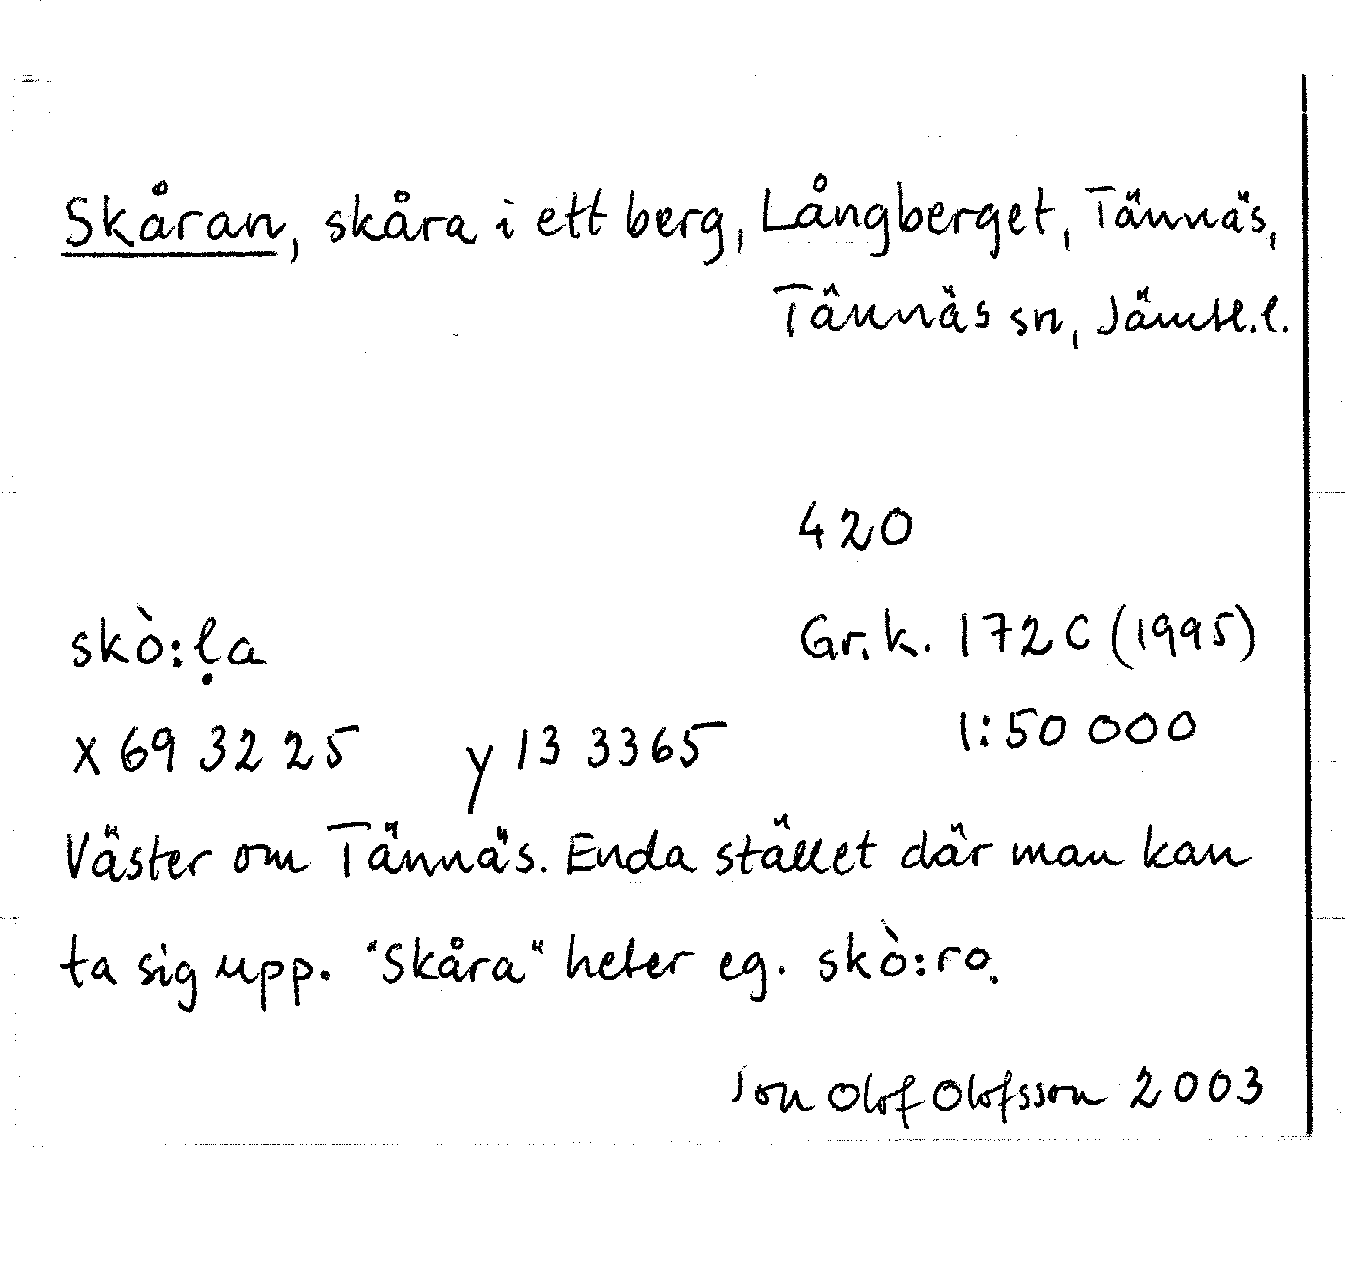 Skåran, skåra i ett berg, Långberget, Tännäs,
Tännäs sn, Jämtl.l.
420
skò:ḷa
Gr.k. 172C (1995)
x 69 32 25 y 13 3365
1:50 000
Väster om Tännäs. Enda stället där man kan
ta sig upp. "Skåra" heter eg. skò:rọ
Jon Olof Olofsson 2003